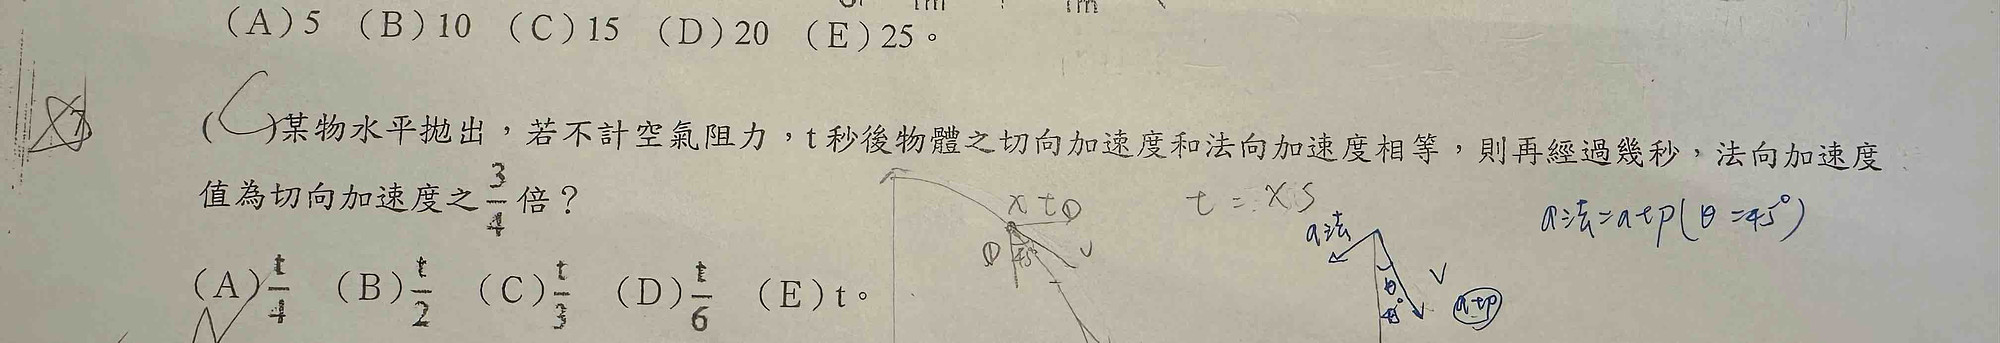 (A)5 (B)10 (C)15 (D)20 (E)25。
7
( C )某物水平拋出，若不計空氣阻力，t秒後物體之切向加速度和法向加速度相等，則再經過幾秒，法向加速度
值為切向加速度之3/4倍？
t = x s
a法=a切(θ=45°)
a法
45°
V
V
θ
45°
a切
(A)t/4 (B)t/2 (C)t/3 (D)t/6 (E)t。